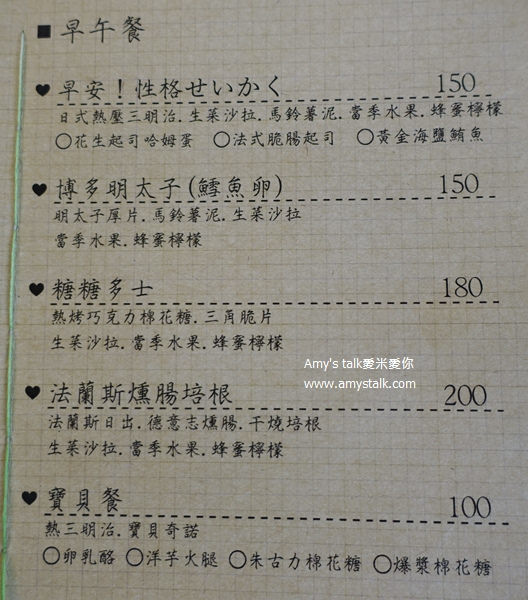 ■早午餐
♥早安！性格せいかく 150
日式熱壓三明治.生菜沙拉.馬鈴薯泥.當季水果.蜂蜜檸檬
○花生起司哈姆蛋 ○法式脆腸起司 ○黃金海鹽鮪魚
♥博多明太子(鱈魚卵) 150
明太子厚片.馬鈴薯泥.生菜沙拉
當季水果.蜂蜜檸檬
♥糖糖多士 180
熱烤巧克力棉花糖.三角脆片
生菜沙拉.當季水果.蜂蜜檸檬
Amy's talk愛米愛你
www.amystalk.com
♥法蘭斯燻腸培根 200
法蘭斯日出.德意志燻腸.干燒培根
生菜沙拉.當季水果.蜂蜜檸檬
♥寶貝餐 100
熱三明治.寶貝奇諾
○卵乳酪 ○洋芋火腿 ○朱古力棉花糖 ○爆漿棉花糖